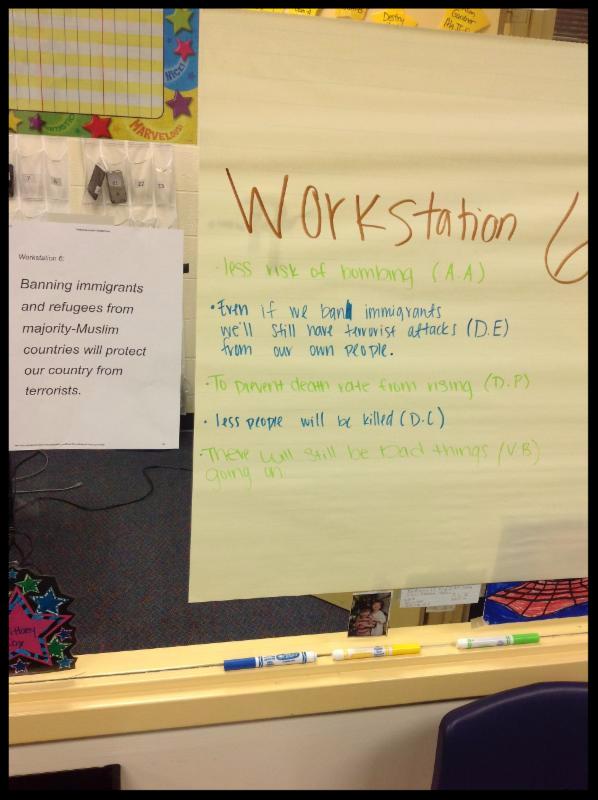 Destiny
MARVELOUS!
FANTASTIC
NICE!
Workstation 6:
Banning immigrants
and refugees from
majority-Muslim
countries will protect
our country from
terrorists.
Workstation 6
· less risk of bombing (A.A)
• Even if we ban immigrants
we'll still have terrorist attacks (D.E)
from our own people.
• To prevent death rate from rising (D.P)
• less people will be killed (D.C)
• There will still be bad things (V.B)
going on